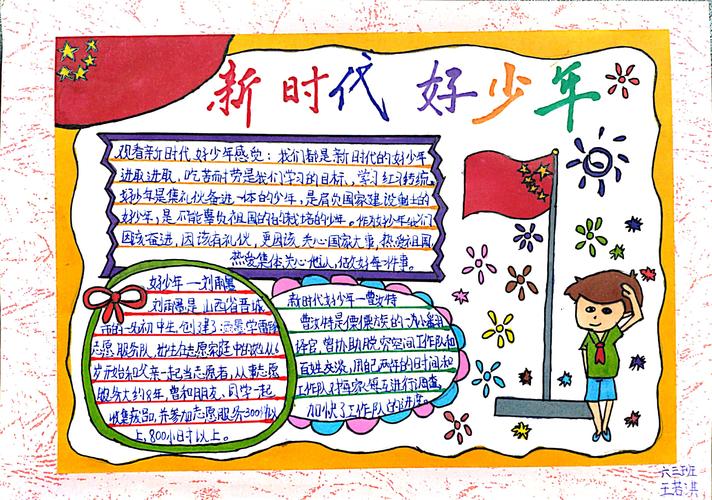 新时代 好少年
观看新时代好少年感觉：我们都是新时代的好少年
进取进取，吃苦耐劳是我们学习的目标，学习红习传统，
好少年是集礼仪备进一体的少年，是肩负国家建设制士的
好少年，是不能辜负祖国的的栽培的少年。作为好少年我们
因该奋进，因该有礼仪，更因该关心国家大事，热爱祖国
热爱集体，关心他人，做好每一件事。
好少年——刘雨墨
刘雨墨是山西省晋城
市的一名初中生，创建了
志愿服务队，出生在志愿家庭中的她从6
岁开始和父亲一起当志愿者，从事志愿
服务大约8年，曾和朋友、同学一起
收集药品，并参加志愿服务300余次以
上，800小时以上。
新时代好少年—曹汝特
曹汝特是傈僳族的一
官，曾协助脱空间工作队和
百姓交流，用自己两年的时间和
工作队对百家每五进行调查，
加快了工作队的进度。
六三班
王若淇